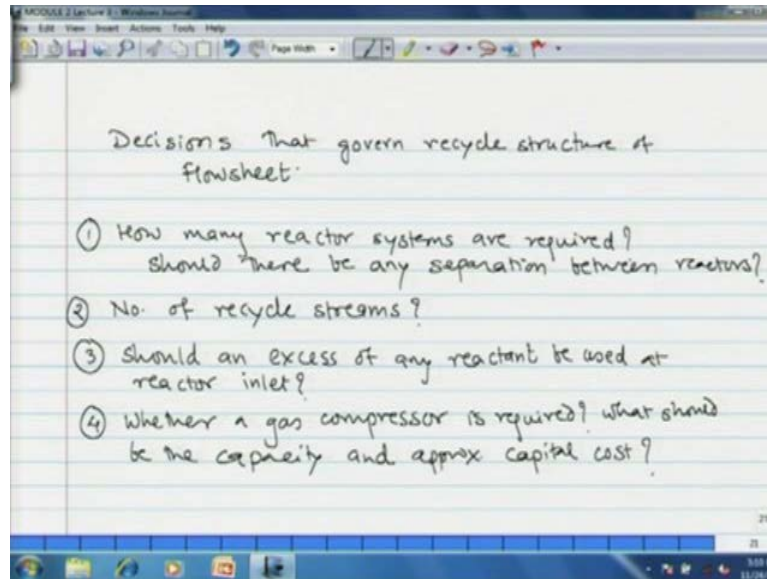 MODULE 2 Lecture 3 - Windows Journal
File Edit View Insert Actions Tools Help
Page Width
Decisions That govern recycle structure of
flowsheet.
① How many reactor systems are required?
Should there be any separation between reactors?
② No. of recycle streams?
③ Should an excess of any reactant be used at
reactor inlet?
④ Whether a gas compressor is required? What should
be the capacity and approx capital cost?
21
21